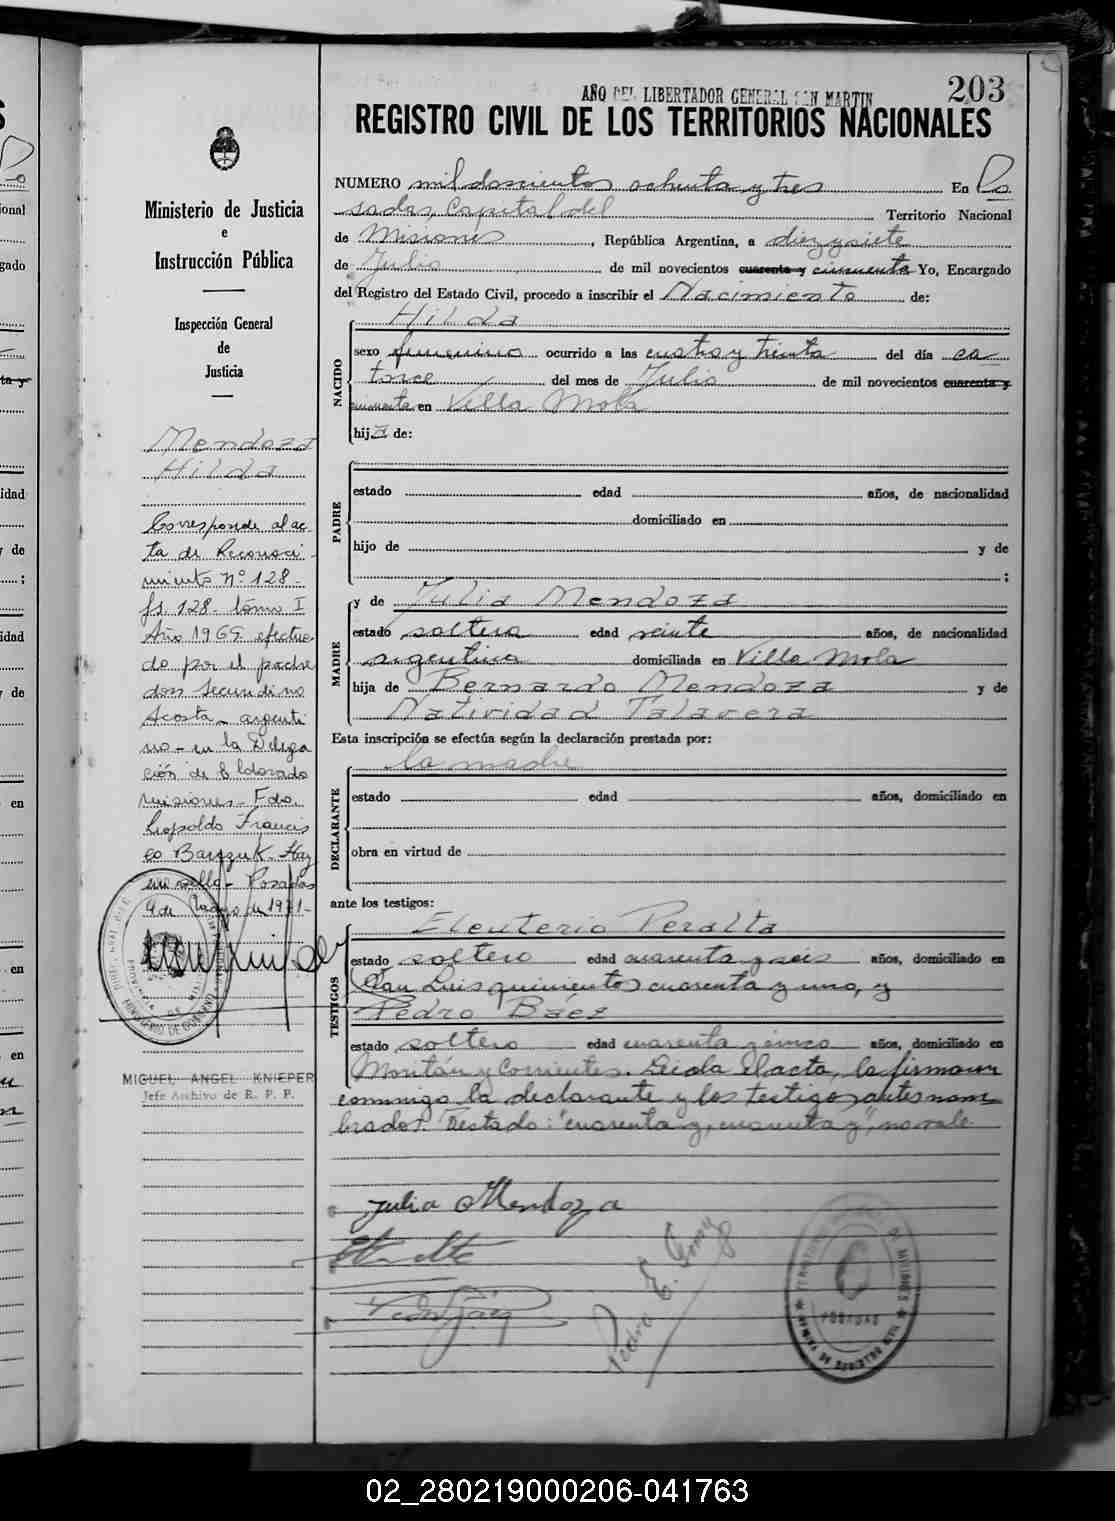 203
AÑO DEL LIBERTADOR GENERAL SAN MARTIN
REGISTRO CIVIL DE LOS TERRITORIOS NACIONALES
Ministerio de Justicia
e
Instrucción Pública
Inspección General
de
Justicia
Mendoza
Hilda
Corresponde al ac
ta de Reconoci-
miento Nº 128-
fs 128- tomo I
Año 1969 efectua
do por el padre
don Secundino
Acosta- argenti
no- en la Delega
ción de Eldorado
Misiones- Fdo.
Leopoldo Francis
co Hay
un sello- Posadas
4 de de 1971-
MIGUEL ANGEL KNIEPER
Jefe Archivo de R. P. P.
NUMERO mil doscientos ochenta y tres En Po
sadas, Capital del Territorio Nacional
de Misiones, República Argentina, a diez y siete
de Julio de mil novecientos cuarenta y cincuenta Yo, Encargado
del Registro del Estado Civil, procedo a inscribir el Nacimiento de:
NACIDO
Hilda
sexo femenino ocurrido a las cuatro y treinta del día ca
torce del mes de Julio de mil novecientos cuarenta y
cincuenta en Villa Mola
hija de:
PADRE
estado edad años, de nacionalidad
domiciliado en
hijo de y de
;
MADRE
y de Julia Mendoza
estado soltera edad veinte años, de nacionalidad
argentina domiciliada en Villa Mola
hija de Bernardo Mendoza y de
Natividad Talavera
Esta inscripción se efectúa según la declaración prestada por:
DECLARANTE
la madre
estado edad años, domiciliado en
obra en virtud de
ante los testigos:
TESTIGOS
Eleuterio Peralta
estado soltero edad cuarenta y seis años, domiciliado en
San Luis quinientos cuarenta y uno, y
Pedro Báez
estado soltero edad cuarenta y cinco años, domiciliado en
Montán y Corrientes. Leida el acta, la firmaron
conmigo la declarante y los testigos antes nom
brados. Testado: "cuarenta y, cuarenta y", no vale
Julia Mendoza
Pedro Báez
Pedro E. Gomez
POSADAS
OFICINA DE REGISTRO CIVIL
02_280219000206-041763